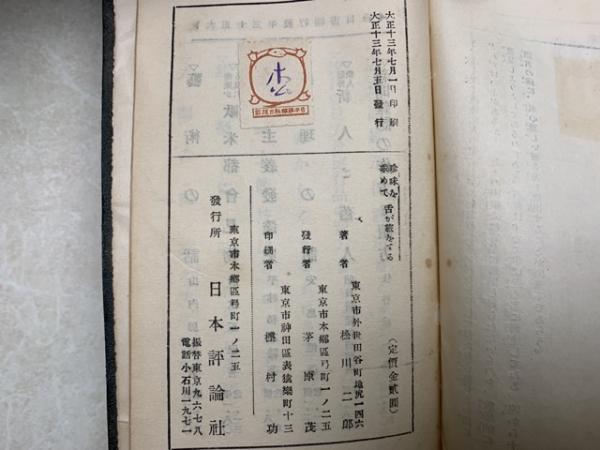 大正十三年七月一日印刷
大正十三年七月五日發行
珍味を求めて 舌が旅をする
(定價金貳圓)
東京市外世田谷町池尻一四六
著者 松川二郎
東京市本鄕區弓町一ノ二五
發行者 茅原茂
東京市神田區表猿樂町十三
印刷者 木村功
東京市本鄕區弓町一ノ二五
發行所 日本評論社
振替東京九六七八
電話小石川一九七一